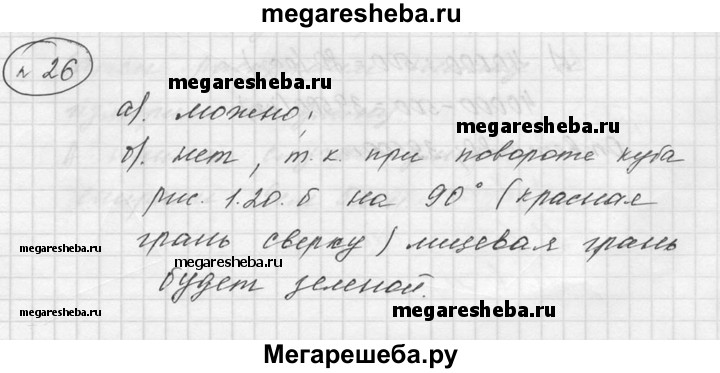 megaresheba.ru
№ 26
megaresheba.ru
а). можно;
megaresheba.ru
б). нет, т.к. при повороте куба
рис. 1.20.б на 90° (красная
грань сверху) лицевая грань
megaresheba.ru
megaresheba.ru
будет зеленой.
megaresheba.ru
megaresheba.ru
Мегарешеба.ру